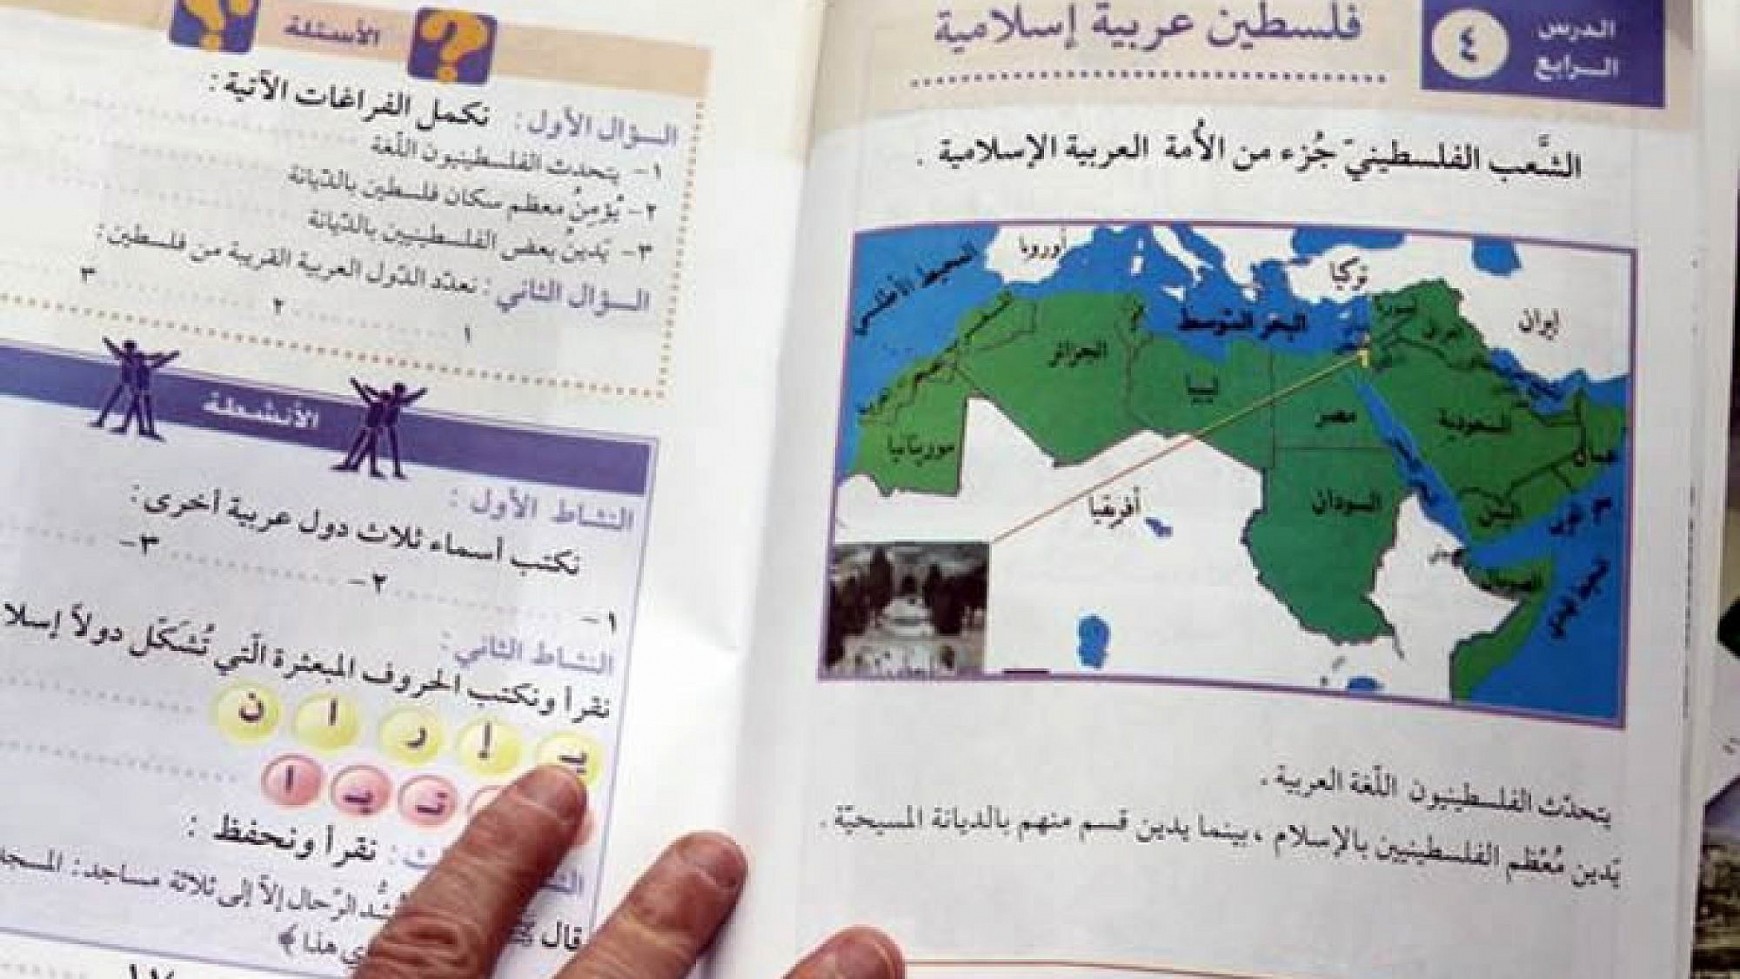 الدرس
الرابع
٤
فلسطين عربية إسلامية
الشَّعب الفلسطينيّ جُزء من الأُمة العربية الإسلامية .
المحيط الأطلسي
أوروبا
تركيا
إيران
سوريا
العراق
البحر المتوسط
الجزائر
ليبيا
مصر
السعودية
عمان
موريتانيا
السودان
اليمن
أفريقيا
الصومال
يتحدّث الفلسطينيون اللّغة العربية .
يَدين مُعْظم الفلسطينيين بالإسلام ، بينما يدين قسم منهم بالديانة المسيحيّة .
الأسئلة
السؤال الأول : نكمل الفراغات الآتية :
١- يتحدث الفلسطينيون اللّغة
٢- يُؤمِنُ معظم سكان فلسطين بالدّيانة
٣- يَدينُ بعض الفلسطينيين بالدّيانة
السؤال الثاني : نعدّد الدّول العربية القريبة من فلسطين :
١ ٢ ٣
الأنشطة
النشاط الأول :
نكتب أسماء ثلاث دول عربية أخرى :
١- ٢- ٣-
النشاط الثاني :
نقرأ ونكتب الحروف المبعثرة الّتي تُشَكّل دولاً إسلا
يـ إ ر ا ن
تـ يـ ا
نقرأ ونحفظ :
قال ﷺ الرّحال إلاّ إلى ثلاثة مساجد: المسجد
هذا ﴾
١٧